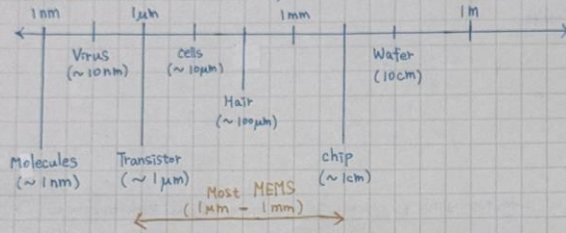 1nm 1μm 1mm 1m
Virus
(~10nm)
cells
(~10μm)
Wafer
(10cm)
Hair
(~100μm)
Molecules
(~1nm)
Transistor
(~1μm)
chip
(~1cm)
Most MEMS
(1μm - 1mm)